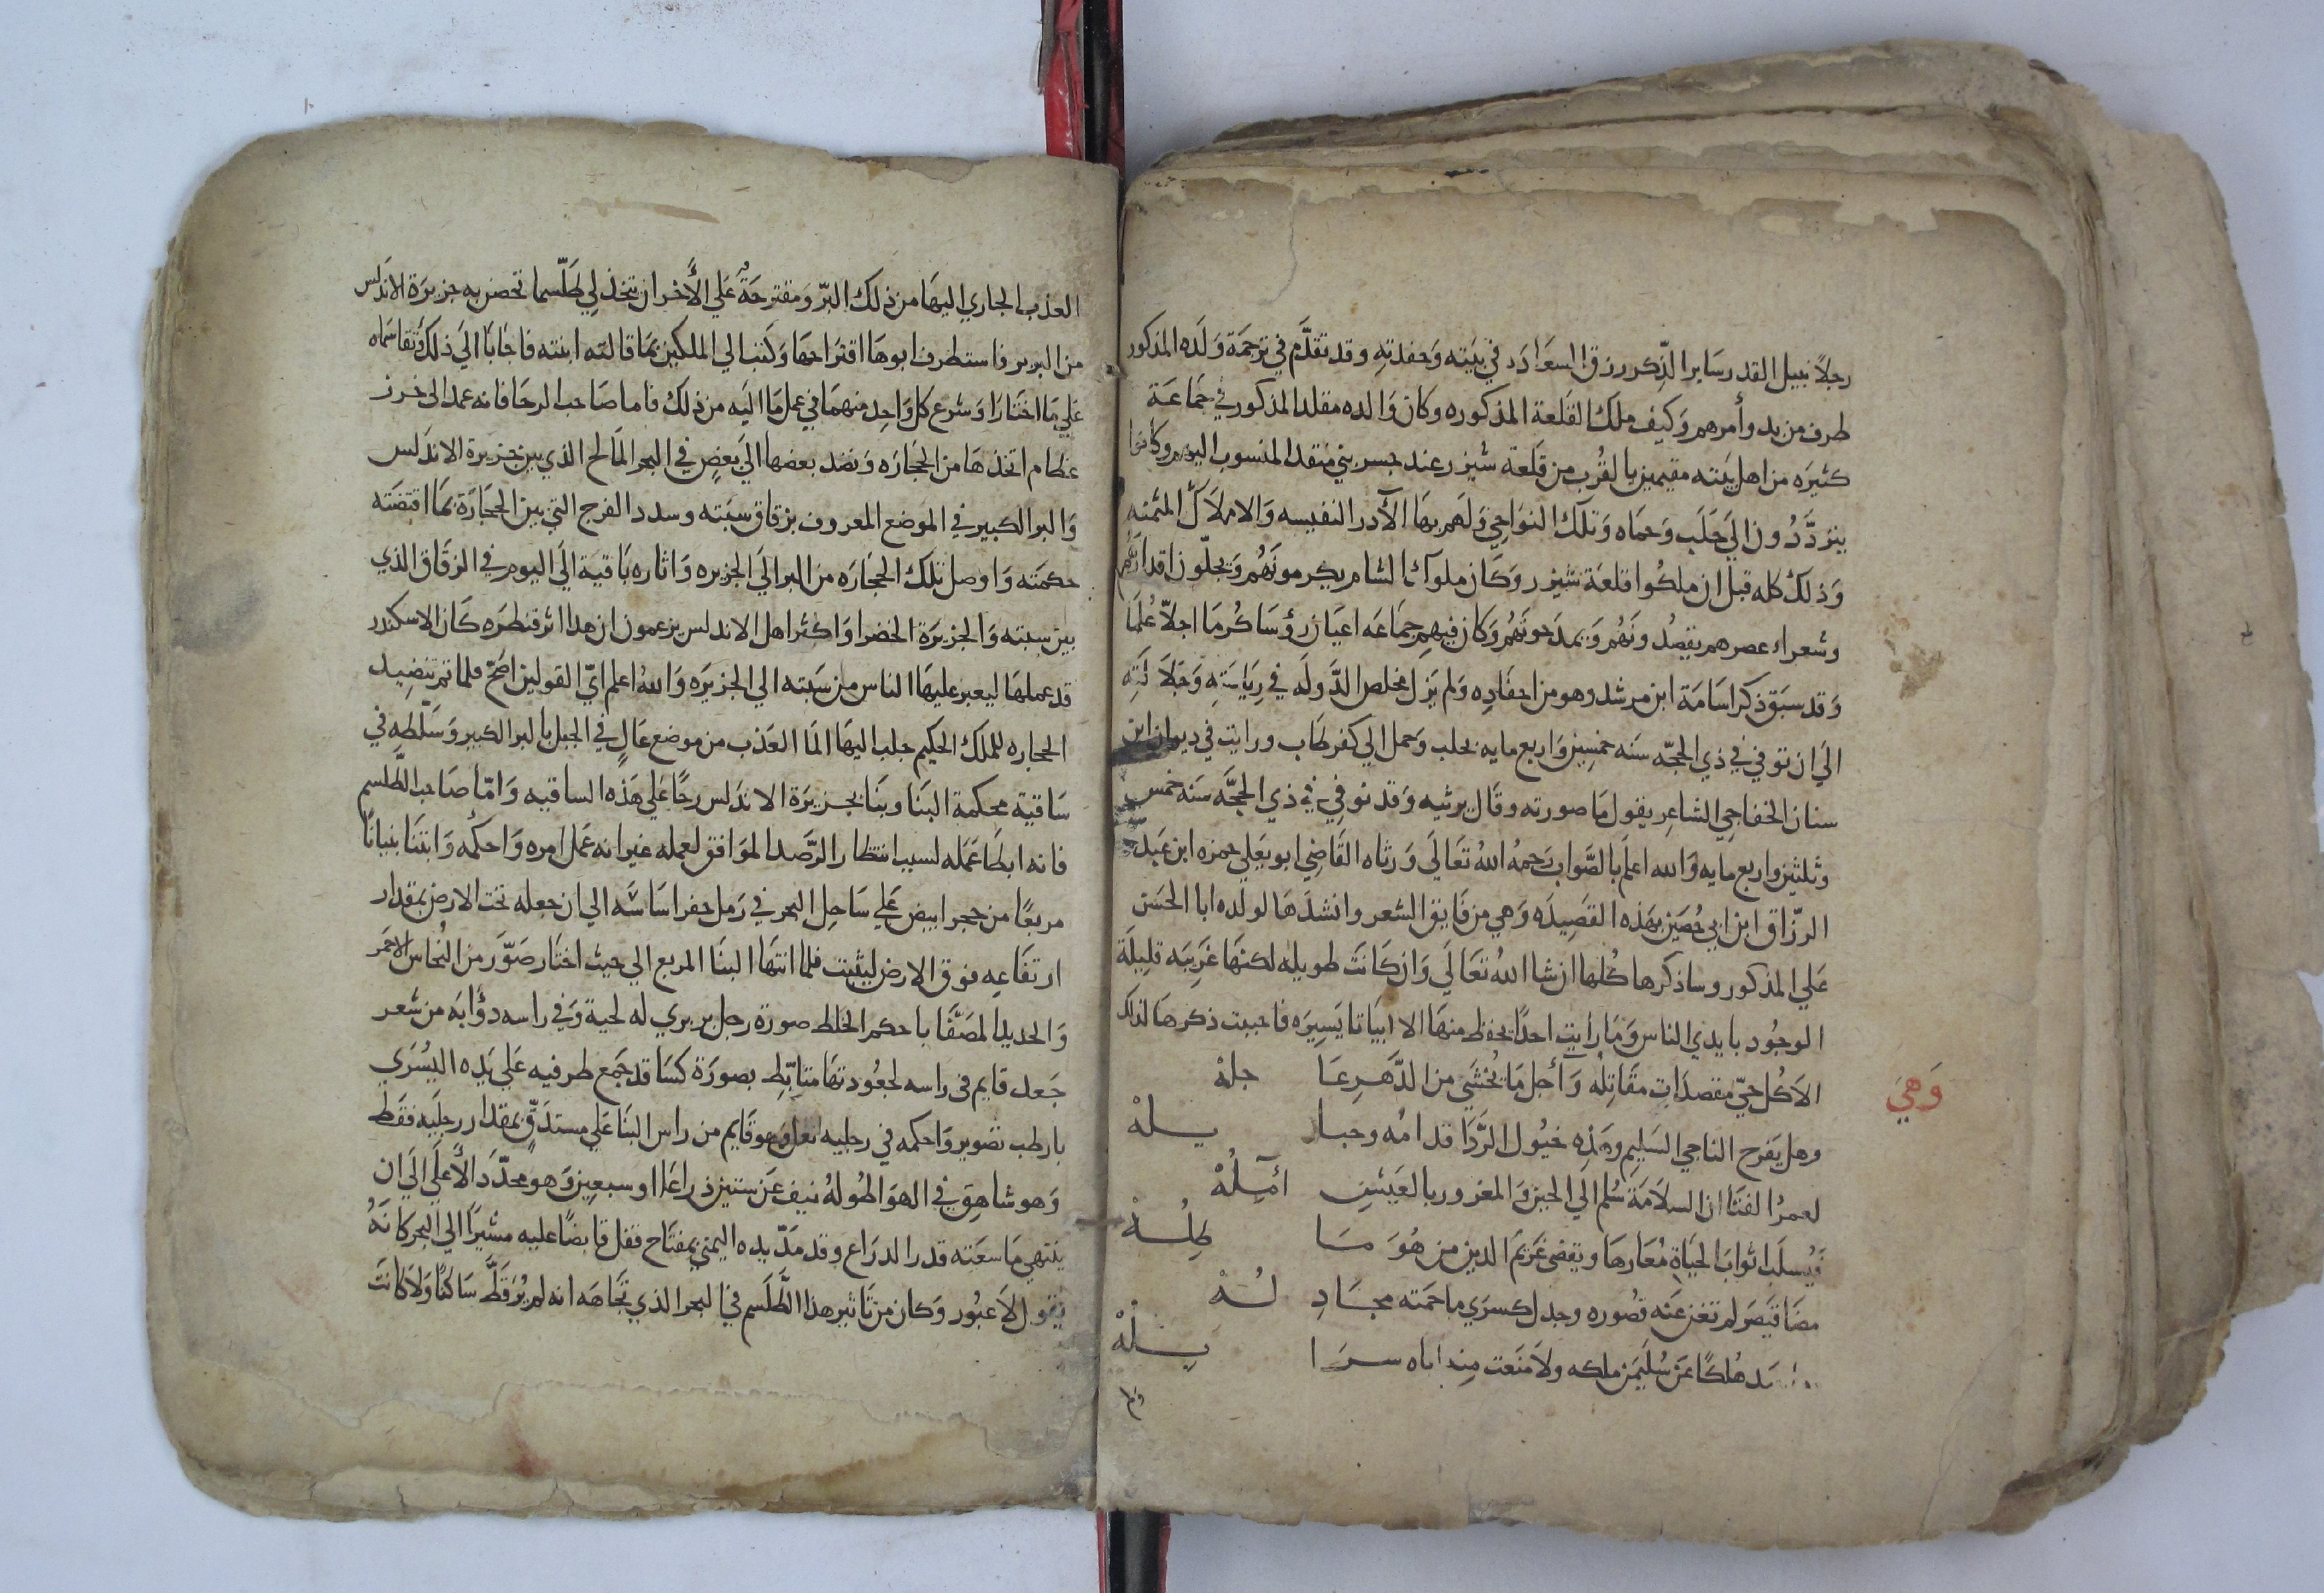 رجلاً نبيل القدر سَاير الذِّكر رزق السعَادَه في بَيته وَحفدتهِ وقد تقدَّم في ترجمَة وَلَده المذكور
طرف من بدو أمرهم وَكيف ملك القَلعة المذكوره وكان وَالده مقلد المذكور في جَمَاعَة
كثيرَه من اهل بَيته مقيمين بالقُرب من قَلعة شيزر عند جسر بني مُنقد المنسوب اليهم وكانوا
يتردَّدُون الي حَلَب وَحمَاه وَتلك النوَاحي وَلَهم بهَا الآدر النفيسه وَالاملاَك المثمنه
وَذلك كله قبل ان ملكُوا قلعَة شيزر وَكَان ملوك الشام يكرمونَهُم وَيجلّون اقدارَهُم
وشعراء عصرهم يقصِدُونَهُم وَيمدَحونَهُم وَكان فيهم جمَاعَه اعيَان رؤسَا كُرمَا اجلاّ عُلمَا
وَقد سَبَق ذكر اسَامَة ابن مرشد وهو من احفَادِه وَلم يَزَل مخلص الدَّولَه في رِيَاسَتهِ وَجَلاَلَتهِ
الَي ان توفي في ذي الحجّه سَنه خمسِين وَاربع مايه بحلب وَحمل الي كفرطَاب ورايت في ديوان ابن
سنان الخفاجي الشاعِر يقول مَا صورته وقَال يرثيه وَقد توفيِ في ذي الحجَّه سَنه خمس
وثلثين واربع مايه وَالله اعلم بالصَّواب رَحمهُ اللهُ تعَالَي وَرثاه القَاضِي ابو يَعلي حمزه ابن عَبد
الرزّاق ابن ابي حُصَين بهَذه القصِيدَه وَهي من فَايق الشعر وانشدَهَا لولده ابا الحَسَن
عَلي المذكور وساذكرها كُلها ان شا اللهُ تعَالَي وَان كَانَت طويله لكنهَا غَريبَه قليلَة
الوجُود بايدي الناس وَمَا رايت احدًا يحفظ منهَا الا ابيَاتا يَسِيَره فاحببت ذكرهَا لذلك
وَهيَ
الاَكُل حيٍّ مقصدَات مقَاتِلُه وَآجل مَا يُخشَي من الدَّهــر عــَا جلهْ
وهل يَفرح الناجي السَلِيم وهَذِه خيُول الرَّدَا قدامُه وحبــا يــــلهْ
لعمرُ الفتَا ان السلاَمَة سُلم الي الحين وَالمغرور بالعَيشِ آمِـلُهْ
فَيُسلَب اثوابَ الحيَاةِ مُعَارهَا ويَقضي غَريمَ الدين من هُوَ مــَا طِلُــهْ
مضَا قيَصَر لم تغن عَنه قصُوره وجدل كسرَي ما حمَته مجـــَادِ لُــهْ
هُلكًا عَن سُلَيمَن ملكه ولاَ مَنَعت مِنه اباه ســرَا يـــلُهْ
العذب الجاري اليهَا من ذلك البرّ وَمقترحَةٌ عَلي الأَخر ان يتخذ لِي طَلّسما تحصن به جزيرَة الاندلس
من البربر فاستظرف ابوهَا اقترَاحهَا وَكتب الي الملكين بمَا قالته ابنته فاجَابَا الَي ذلك وَتقاسَمَاه
عَلي مَا اختَارَا وَشرع كل وَاحِد منهمَا في عمل مَا اليَه من ذلك فاما صَاحب الرحَا فانه عمد الى خرز
عظام اتخذهَا من الحجَارَه وَنضد بعضها الَي بَعضٍ في البحر المَالح الذي بين جزيرة الاندَلس
وَالبر الكبير في الموضع المعروف بزقاق سبَته وسدد الفرج التي بين الحجَارَة بمَا اقتضَته
حكمَته وَاوصل تلك الحجَارَه من البر الَي الجزيره وَاثاره بَاقيَة الَي اليوم في الزقَاق الذي
بين سبته وَالجزيرَة الخضرا وَاكثر اهل الاندلس يزعمون ان هذا اثر قنطرَه كَان الاسكندر
قد عملهَا ليعبر عليهَا الناس من سَبته الي الجزيرَه وَاللهُ اعلم ايّ القولين اصَحّ فلما تم تنضِيد
الحجاره للملك الحكيم جلب اليهَا المَا العَذب من موضع عَالٍ في الجبل بالبر الكبير وَسَلّطهِ في
سَاقيَة محكمة البنَا وبنَا بجزيرَة الاندَلس رحًا عَلي هَذه الساقيه وَامّا صَاحب الطَّلسم
فانه ابطَا عَمَله لسبب انتظَار الرَّصد الموَافق لعمله غير انه عَمل امره وَاحكَمه وَابتنَا بنيانًا
مربعًا من حجر ابيض عَلي سَاحِل البحر في رَمل حفر اسَاسَه الي ان جعله تحت الارض بمقدار
ارتفَاعِه فوق الارض ليثبت فلما انتهَا البنَا المربع الي حيث اختَار صَوّرَ من النُحَاس الاحمَر
وَالحديد المصَفَّا باحكم الخلط صورة رجل بربري له لحية وَفي راسه دؤابَه من شعر
جَعد قايم فى راسه لجعُودتهَا متَابِّط بصورَة كسَا قد جَمع طرفيه عَلي يَدِه اليُسرَي
بارطب تصوير وَاحكمه في رجليه نعل وَهو قَايم من راس البنَا عَلي مستدَقّ بمقدار رجلَيه فقَط
وَهو شَاهِق في الهوَا طُولهُ نيف عَن ستين ذراعًا او سبعِين وَهو محدّد الأَعلَي الَي ان
ينتهي مَا سَعَته قدر الدرَاع وقد مَدّ يده اليمني بمفتَاح قفل قابضًا عليه مشيرًا الي البحر كانَهُ
يَقول لاَ عبُور وَكان من تَاثير هذا الطَّلسم في البحر الذي تجَاهَه انه لم يُرَ قَطَّ سَاكنًا وَلاَ كانَت